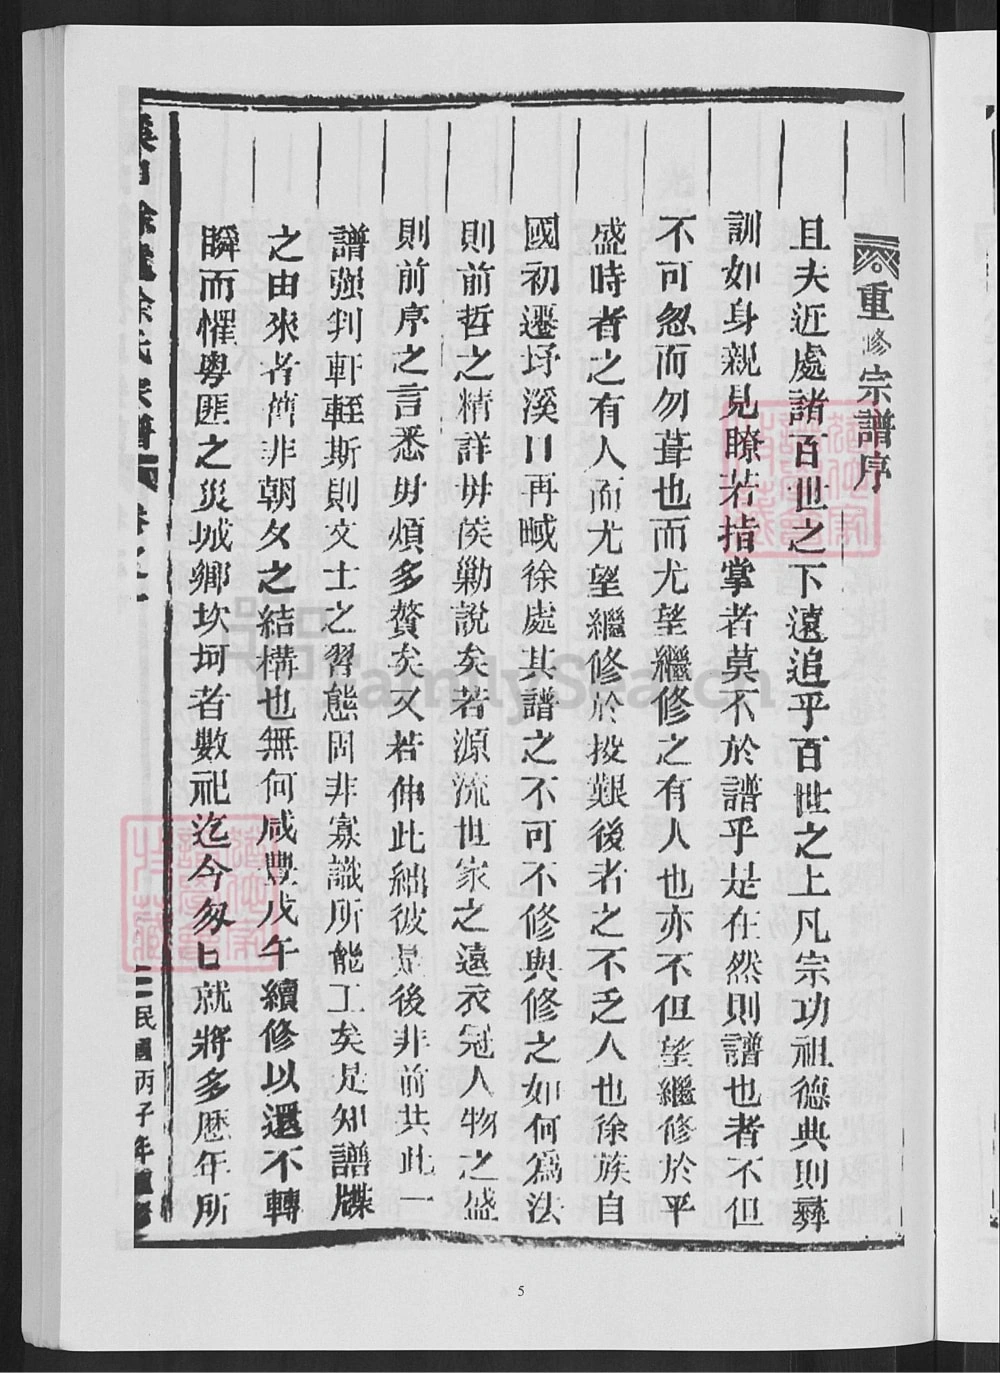 重修宗譜序
且夫近處諸百世之下遠追乎百世之上凡宗功祖德典則彝
訓如身親見瞭若指掌者莫不於譜乎是在然則譜也者不但
不可忽而勿葺也而尤望繼修之有人也亦不但望繼修於平
盛時者之有人而尤望繼修於投艱後者之不乏人也徐族自
國初遷圩溪口再畈徐處其譜之不可不修與修之如何為法
則前哲之精詳毋俟勦說矣若源流世家之遠衣冠人物之盛
則前序之言悉毋煩多贅矣又若伸此絀彼是後非前共此一
譜強判軒輊斯則文士之習態固非寡識所能工矣是知譜牒
之由來者舊非朝夕之結構也無何咸豐戊午續修以還不轉
瞬而懼粵匪之災城鄉坎坷者數祀迄今匆匕就將多歷年所
徐氏宗譜 卷之一
民國丙子年重修
FamilySearch
5